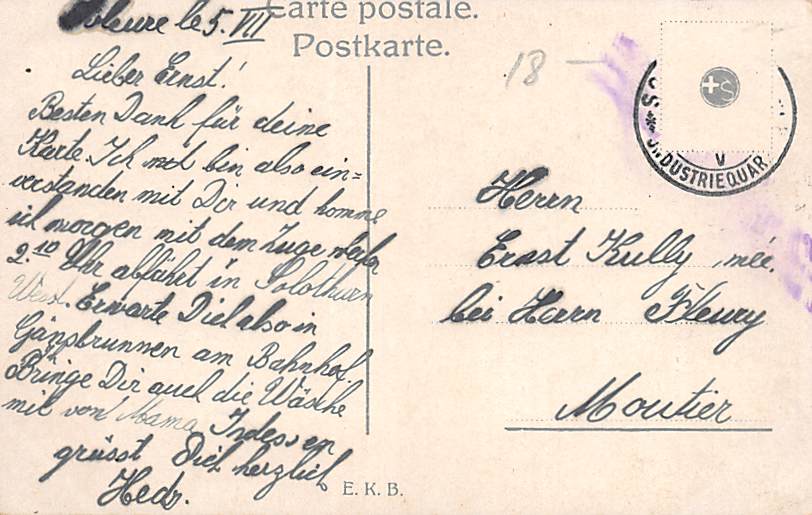 Carte postale.
Postkarte.
Soleure le 5. VII
Lieber Ernst!
Besten Dank für deine
Karte. Ich bin also ein=
verstanden mit Dir und komme
ich morgen mit dem Zuge welcher
2.10 Uhr abfährt in Solothurn
West. Erwarte Dich also in
Gänsbrunnen am Bahnhof.
Bringe Dir auch die Wäsche
mit von Mama Indessen
grüsst Dich herzlich
Hedy.
18
INDUSTRIEQUAR
V
Herrn
Ernst Kully méc.
bei Herrn Fleury
Moutier
E. K. B.